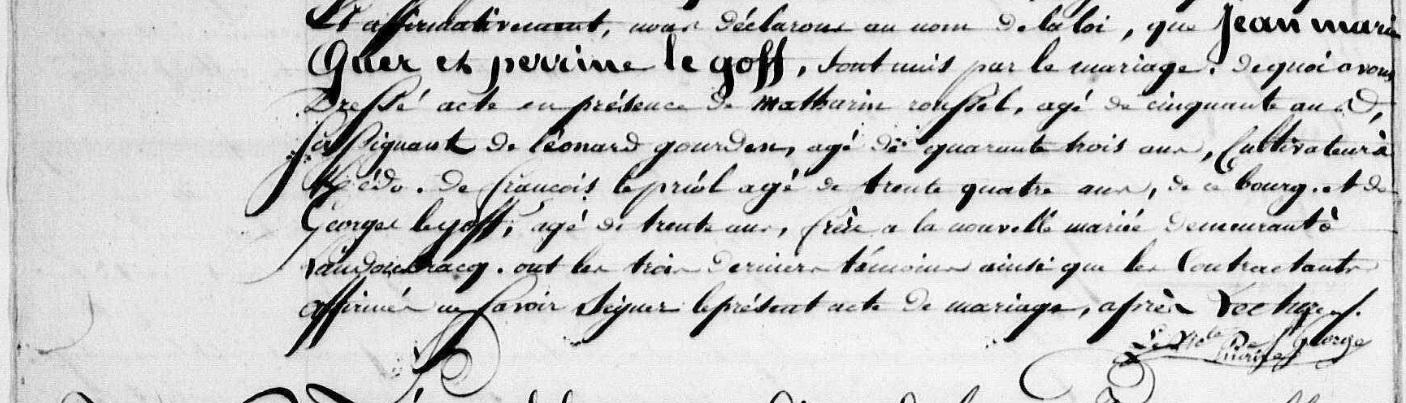 Et affirmativement, nous déclarons au nom de la loi, que Jean marie
Guer et perrine le goff, sont unis par le mariage. de quoi avons
Dressé acte en présence de Mathurin roussel, agé de cinquante ans,
soussignant de léonard gourden, agé de quarante trois ans, Cultivateur à
de françois le priol agé de trente quatre ans, de ce bourg. et de
Georges le goff, agé de trente ans, frère a la nouvelle mariée demeurant à
ont les trois derniers témoins ainsi que les Contractants
affirmés ne savoir signer le présent acte de mariage, après lecture.
George